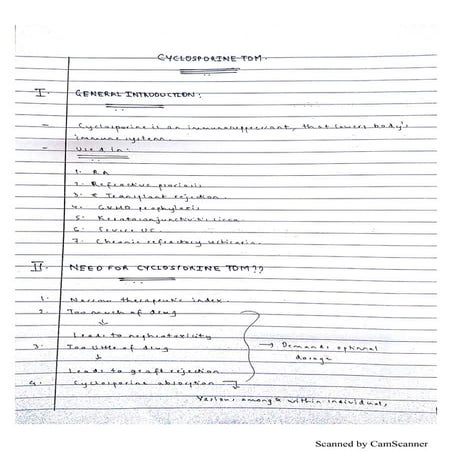 CYCLOSPORINE TDM.
I. GENERAL INTRODUCTION:
- Cyclosporine is an immunosuppressant, that lowers body's
immune system.
- Used in:
1. RA
2. Refractive psoriasis
3. Transplant rejection.
4. GVHD prophylaxis
5. Keratoconjunctivitis sicca
6. Severe UC.
7. Chronic refractory urticaria.
II. NEED FOR CYCLOSPORINE TDM??
1. Narrow therapeutic index.
2. Too much of drug
↓
Leads to nephrotoxicity
3. Too little of drug → Demands optimal
↓ dosage
Leads to graft rejection
4. Cyclosporine absorption
Various among & within individuals,
Scanned by CamScanner